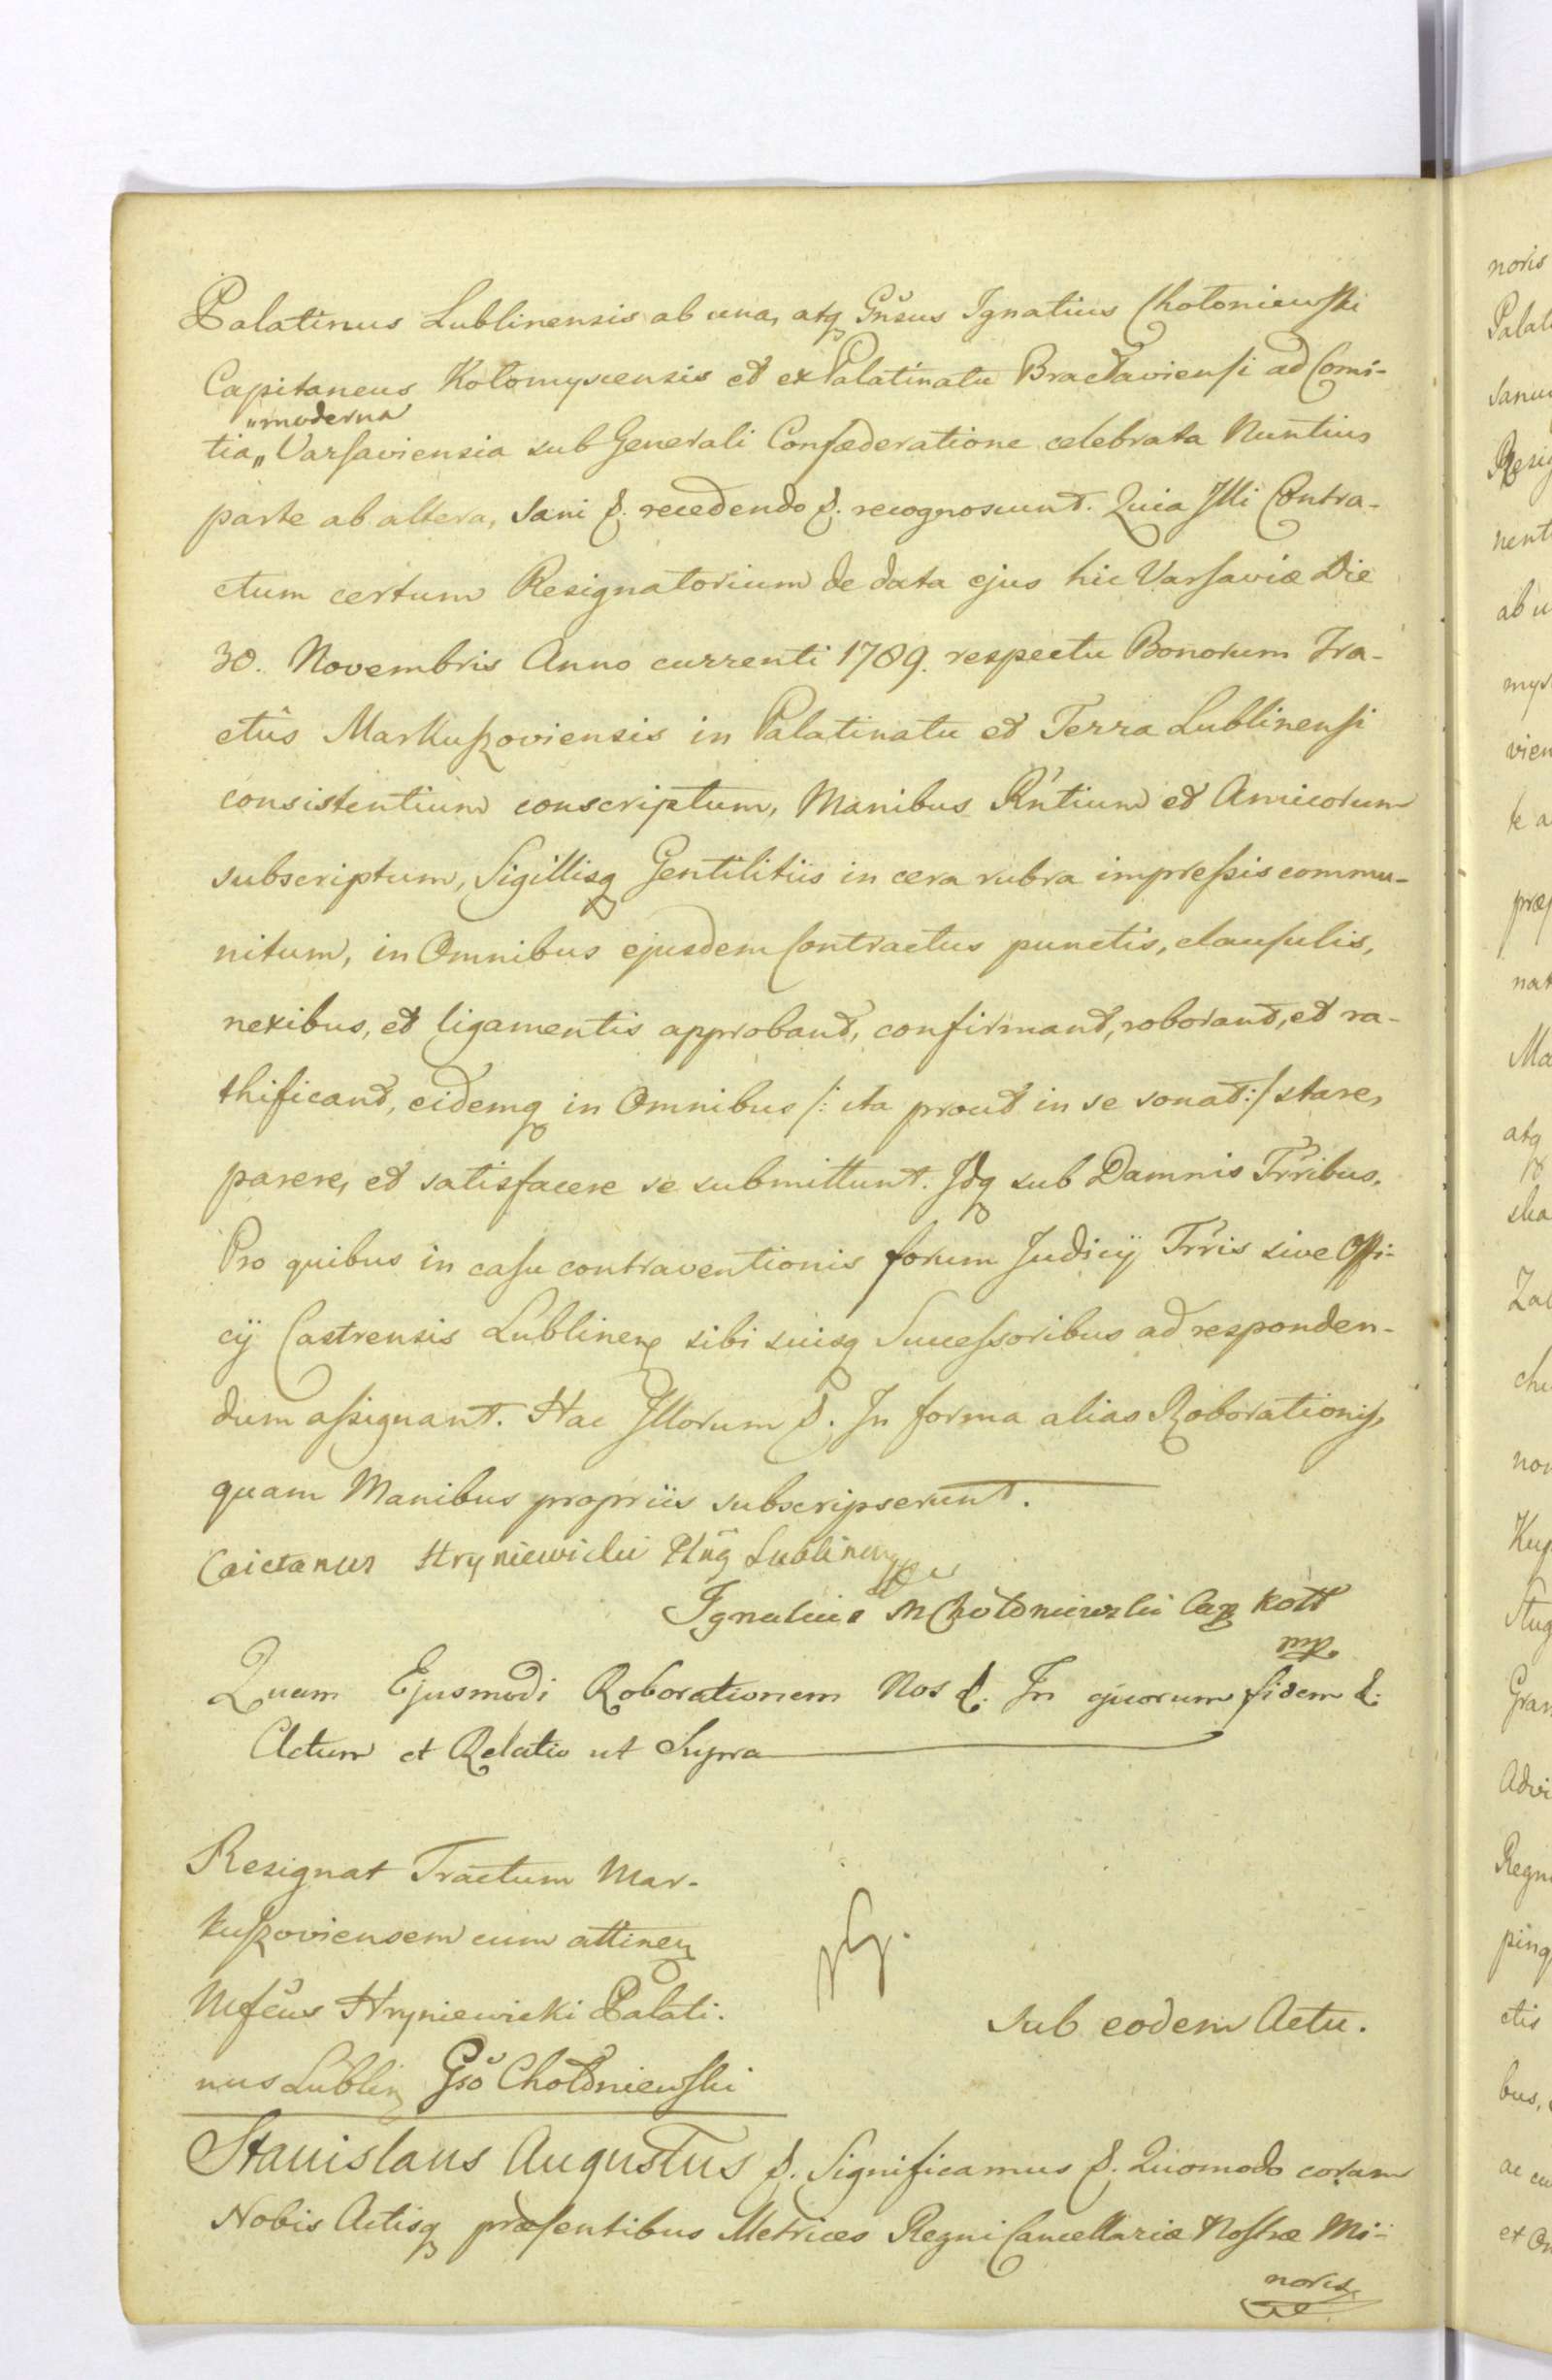 Palatinus Lublinensis ab una, atq Gnsus Ignatius Chołoniewski
Capitaneus Kołomyscensis et ex Palatinatu Bracłaviensi ad Comi-
"moderna
tia„ Varsaviensia sub Generali Confæderatione celebrata Nuntius
parte ab altera, Sani &. recedendo &. recognoscunt. Quia Illi Contra-
ctum certum Resignatorium de data ejus hic Varsaviæ Die
30. Novembris Anno currenti 1789. respectu Bonorum Tra-
ctûs Markuszoviensis in Palatinatu et Terra Lublinensi
consistentium conscriptum, Manibus Rntium et Amicorum
subscriptum, Sigillisq Gentilitiis in cera rubra impressis commu-
nitum, in Omnibus ejusdem Contractus punctis, clausulis,
nexibus, et ligamentis approbant, confirmant, roborant, et ra-
thificant, eidemq in Omnibus /: ita prout in se sonat :/ stare,
parere, et satisfacere se submittunt. Idq sub Damnis Trribus.
Pro quibus in casu contraventionis forum Judicij Trris sive Offi-
cij Castrensis Lublinen sibi suisq Successoribus ad responden-
dum assignant. Hac Illorum &. In forma alias Roborationis,
quam Manibus propriis subscripserunt.
Caietanus Hryniewicki Lublinen
Ignatius Chołoniewski Cap Koł
mp
Quam Ejusmodi Roborationem Nos &. In quorum fidem &.
Actum et Relatio ut Supra
Resignat Tractum Mar-
kuszoviensem cum attinen
Mfcus Hryniewicki Palati-
nus Lublin Gso Chołoniewski
Sub eodem Actu.
Stanislaus Augustus &. Significamus &. Quomodo coram
Nobis Actisq præsentibus Metrices Regni Cancellariæ Nostræ Mi-
noris
noris
Palat
Resig
nent
ab u
vien
nat
Ma
atq
Regni
ctis
bus,